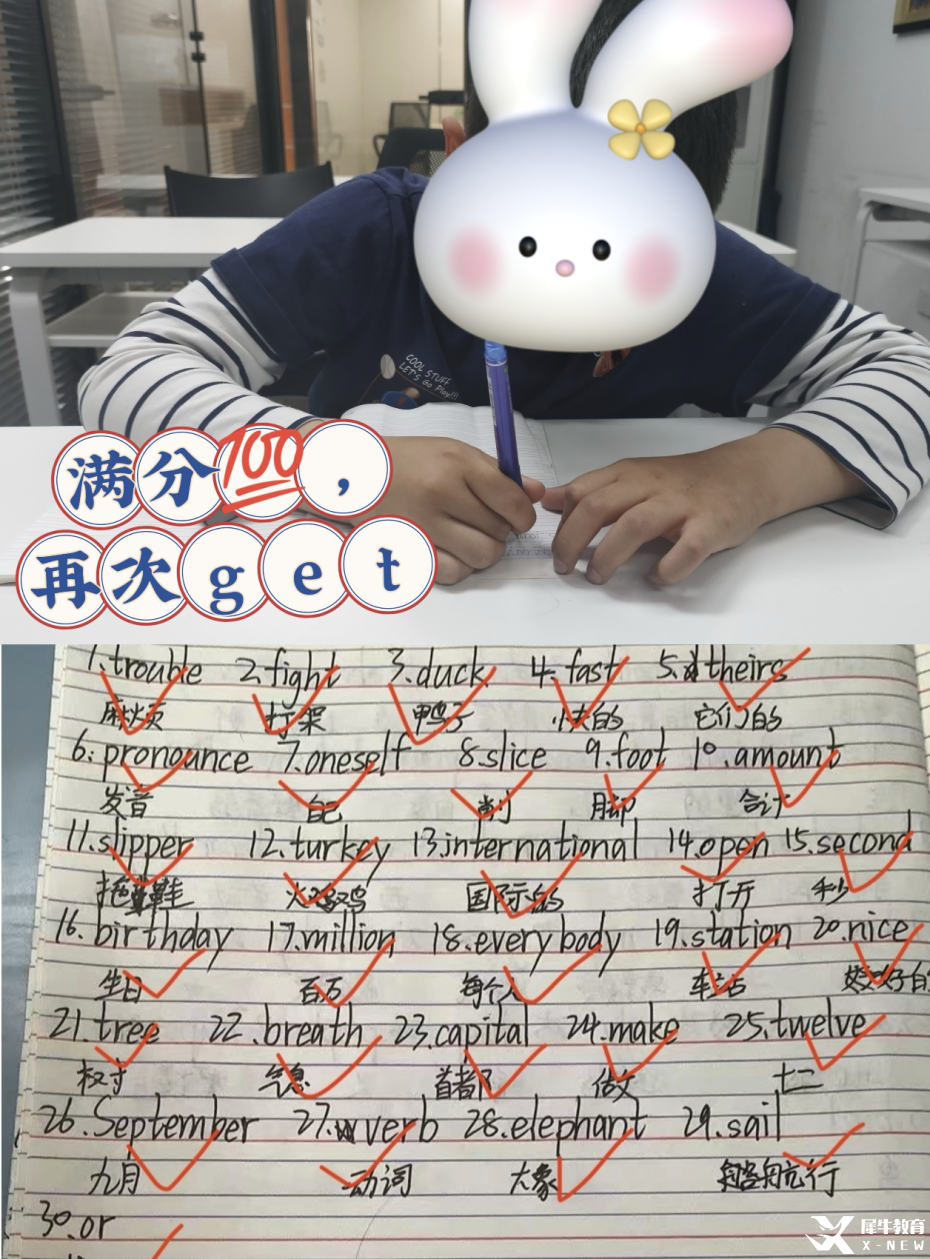 COOL STUFF
LET'S GO Play!!!
满分100，
再次get
1.trouble 2.fight 3.duck 4.fast 5.theirs
麻烦 打架 鸭子 快的 它们的
6.pronounce 7.oneself 8.slice 9.foot 10.amount
发音 自己 削 脚 合计
11.slipper 12.turkey 13.international 14.open 15.second
拖鞋 火鸡 国际的 打开 秒
16.birthday 17.million 18.everybody 19.station 20.nice
生日 百万 每个人 车站 好的
21.tree 22.breath 23.capital 24.make 25.twelve
树 气息 首都 做 十二
26.September 27.verb 28.elephant 29.sail
九月 动词 大象 航行
30.or
犀牛教育
X-NEW